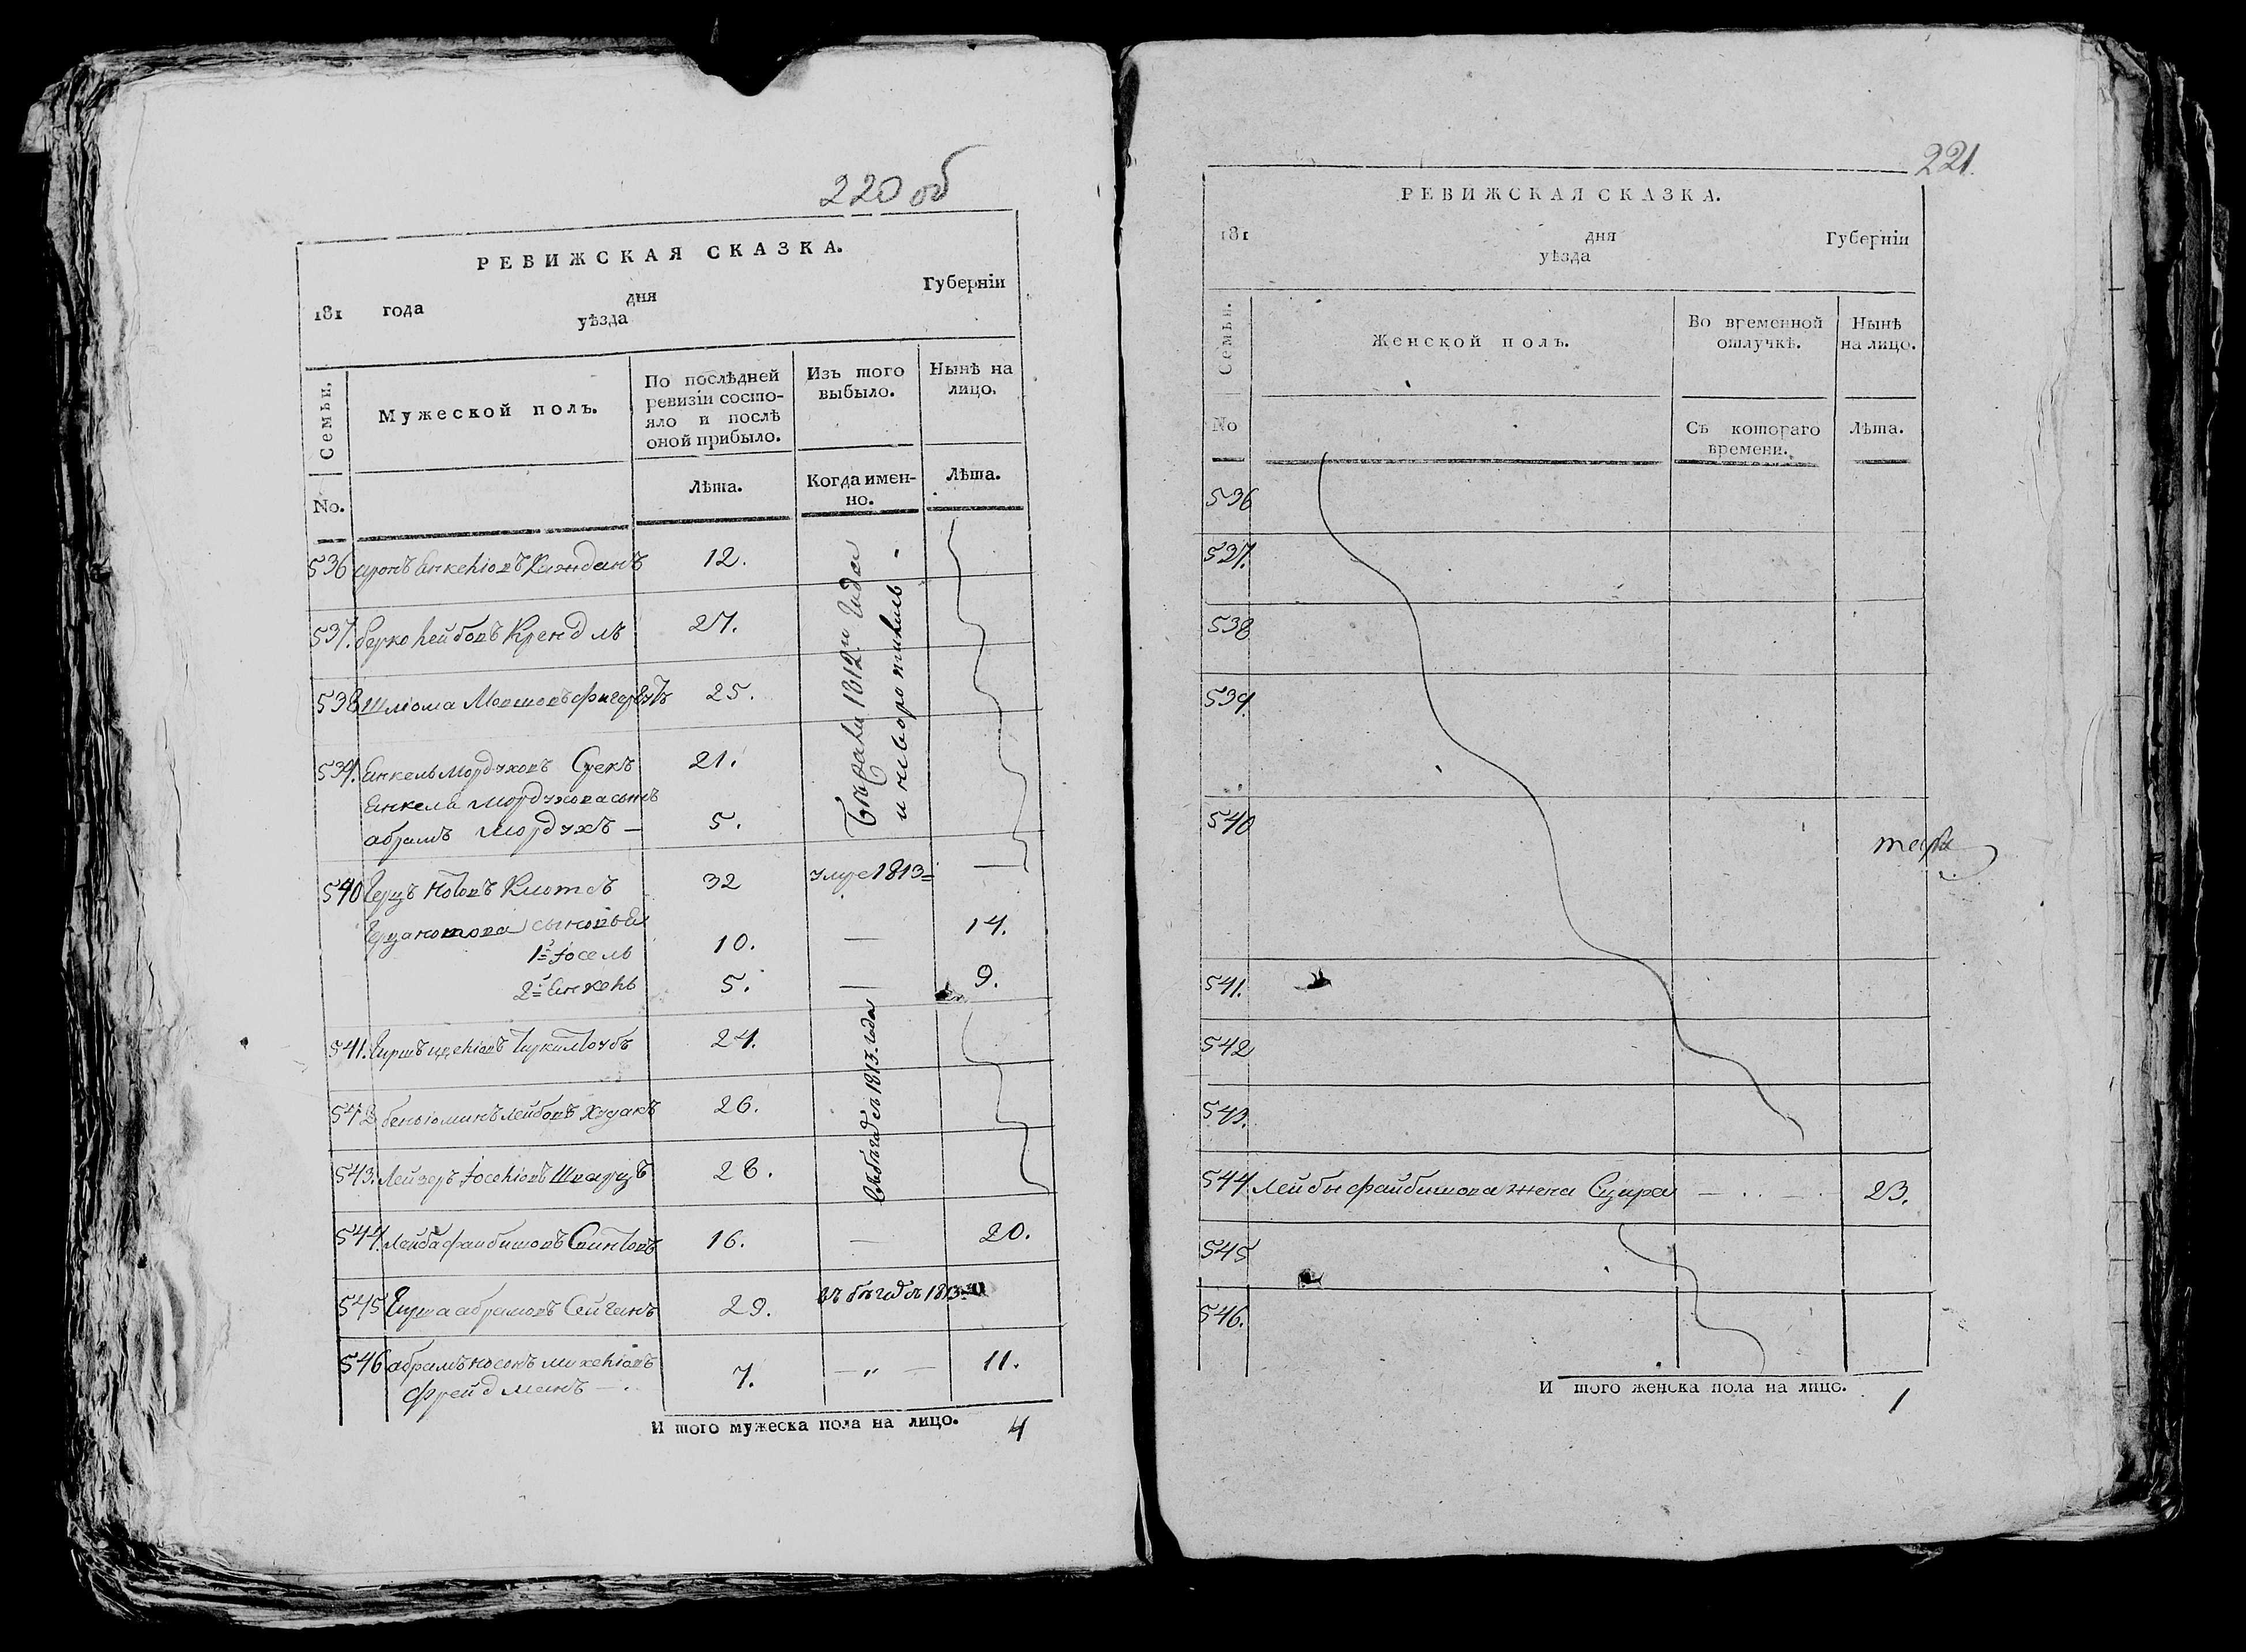 220 об
РЕВИЖСКАЯ СКАЗКА.
181 года дня Губерніи
уѣзда
Семьи. Мужеской полъ. По послѣдней ревизіи состояло и послѣ оной прибыло. Изъ того выбыло. Нынѣ на лицо.
No. Лѣта. Когда именно. Лѣта.
536 12.
537. берко лейбовъ Крендль 27.
538 Шліома Мовшовъ 25.
бежали 1812го Года
и невиротились
539. Янкель Мордуховъ 21.
Янкеля Мордухова сынъ
абрамъ Мордухъ — 5.
540 Герцъ Нотовъ 32 умре 1813= —
Герца нотова сыновья
1й Іосель 10. — 14.
2й Янкель 5. — 9.
541. 24.
542 беньюминъ лейбовъ Худакъ 26.
543. Лейзеръ Іоселіовъ Шварцъ 28.
въ бѣгахъ 1813. Года
544. Лейба файбишовъ 16. — 20.
545 абрамовъ 29. въ бѣгахъ 1813
546 абрамъ носонъ михеліовъ
фрейдманъ — 7. — „ — 11.
И того мужеска пола на лицо. 4
221.
РЕВИЖСКАЯ СКАЗКА.
181 дня Губерніи
уѣзда
Семьи. Женской полъ. Во временной отлучкѣ. Нынѣ на лицо.
No Съ котораго времени. Лѣта.
536
537.
538
539.
540
541.
542
543.
544 Лейбы файбишова жена Сура — . . — . 23.
545
546.
И того женска пола на лицо. 1